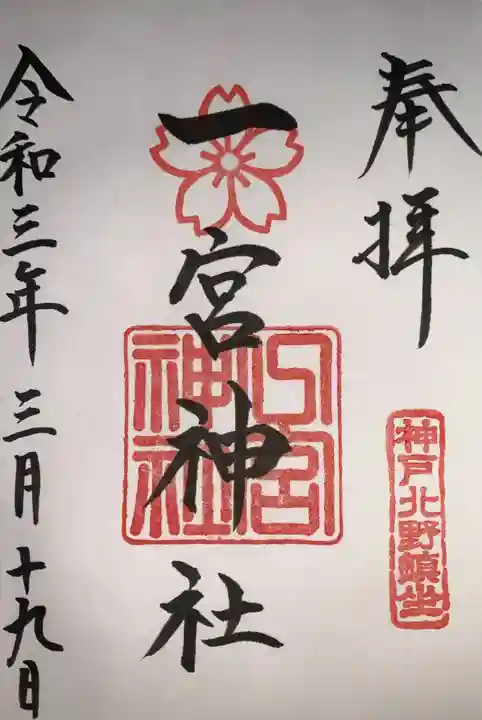 奉拝
神戸北野鎮坐
一宮神社
一宮神社
令和三年三月十九日